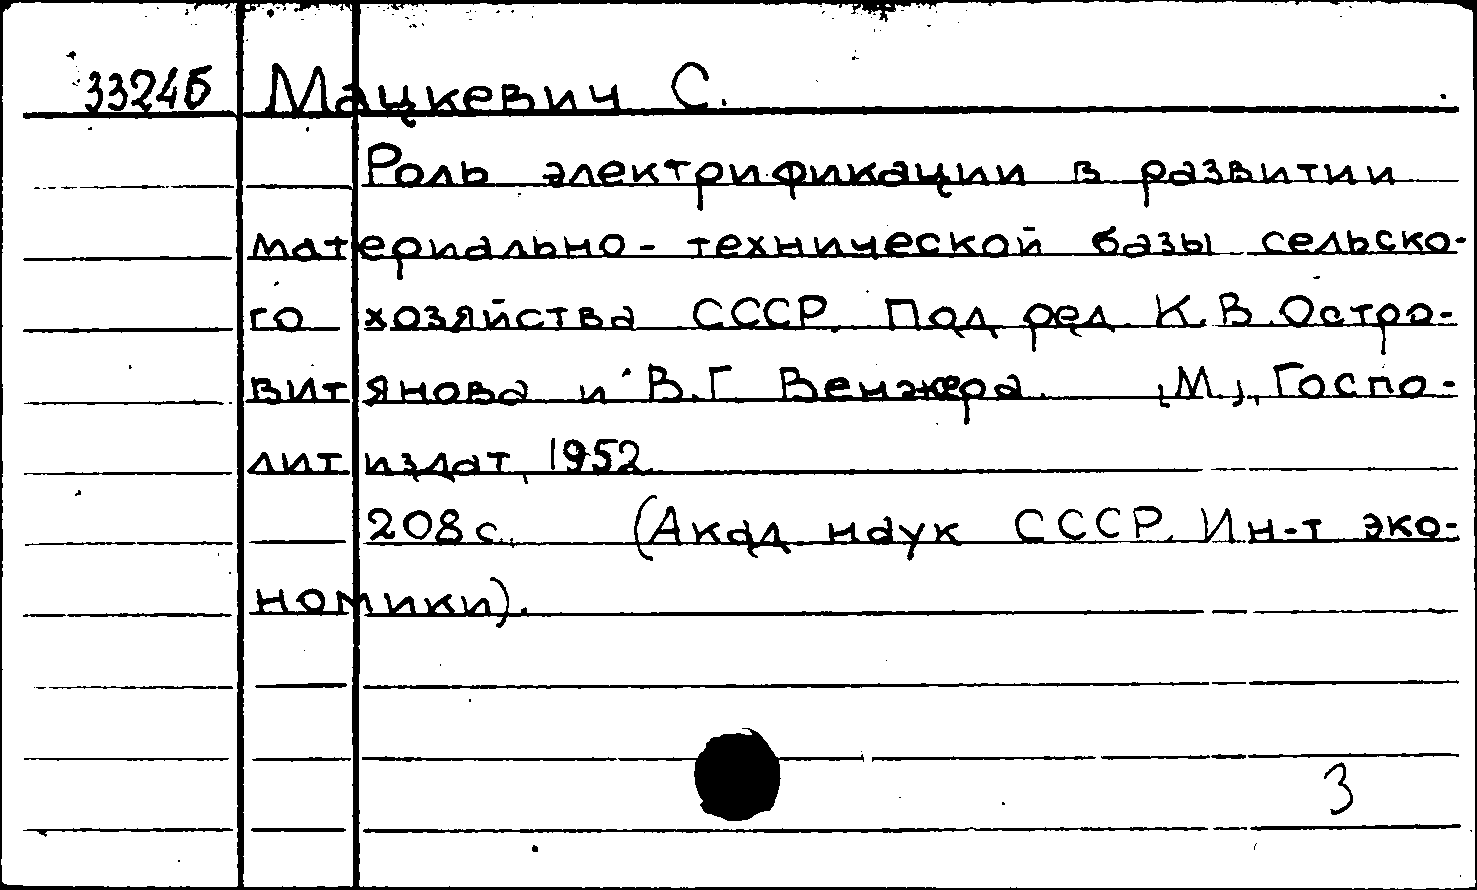 33246 Мацкевич С.
Роль электрификации в развитии
материально-технической базы сельско-
го хозяйства СССР. Под ред. К.В.Остро-
витянова и В.Г. Венжера. [М.], Госпо-
литиздат, 1952.
208 с. (Акад. наук СССР. Ин-т эко-
номики).
3